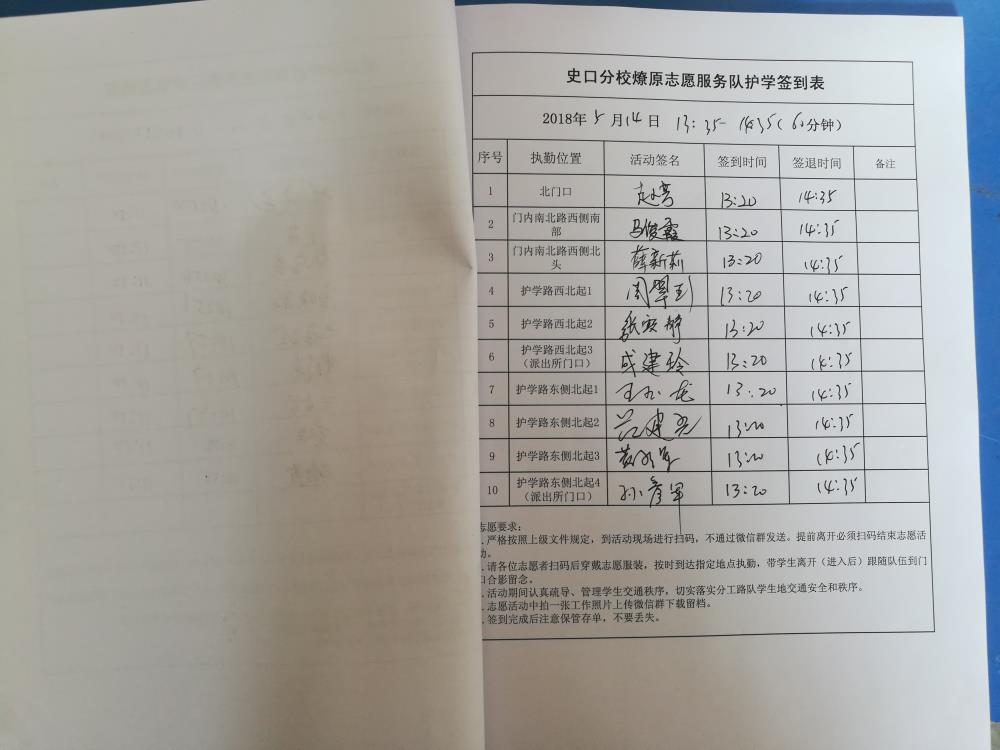 史口分校燎原志愿服务队护学签到表
2018年5月14日 13:35-14:35(60分钟)
序号 执勤位置 活动签名 签到时间 签退时间 备注
1 北门口 13:20 14:35
2 门内南北路西侧南部 马俊霞 13:20 14:35
3 门内南北路西侧北头 薛新莉 13:20 14:35
4 护学路西北起1 13:20 14:35
5 护学路西北起2 13:20 14:35
6 护学路西北起3（派出所门口） 成建玲 13:20 14:35
7 护学路东侧北起1 13:20 14:35
8 护学路东侧北起2 13:20 14:35
9 护学路东侧北起3 13:20 14:35
10 护学路东侧北起4（派出所门口） 孙彦军 13:20 14:35
志愿要求：
.严格按照上级文件规定，到活动现场进行扫码，不通过微信群发送。提前离开必须扫码结束志愿活
动。
.请各位志愿者扫码后穿戴志愿服装，按时到达指定地点执勤，带学生离开（进入后）跟随队伍到门
口合影留念。
.活动期间认真疏导、管理学生交通秩序，切实落实分工路队学生地交通安全和秩序。
.志愿活动中拍一张工作照片上传微信群下载留档。
.签到完成后注意保管存单，不要丢失。